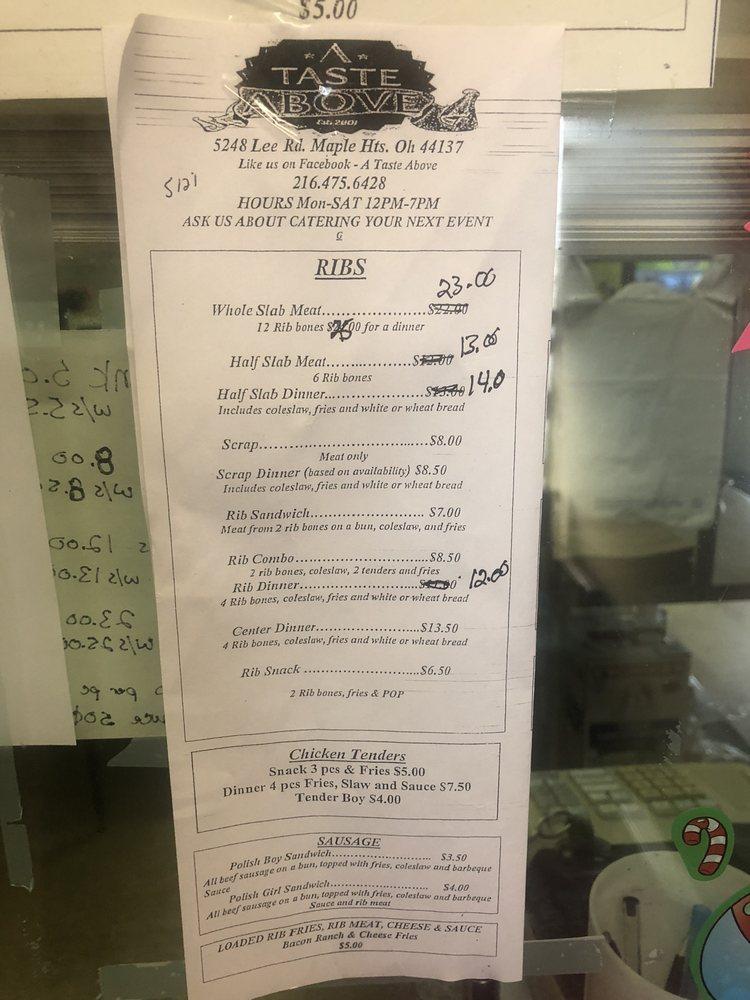 $5.00
A
TASTE
ABOVE
Est. 2001
5248 Lee Rd. Maple Hts. Oh 44137
Like us on Facebook - A Taste Above
216.475.6428
HOURS Mon-SAT 12PM-7PM
ASK US ABOUT CATERING YOUR NEXT EVENT
G
RIBS
23.00
Whole Slab Meat.....................$22.00
12 Rib bones $25.00 for a dinner
Half Slab Meat...................$12.00 13.00
6 Rib bones
Half Slab Dinner...................$13.00 14.0
Includes coleslaw, fries and white or wheat bread
Scrap...................................$8.00
Meat only
Scrap Dinner (based on availability) $8.50
Includes coleslaw, fries and white or wheat bread
Rib Sandwich....................... $7.00
Meat from 2 rib bones on a bun, coleslaw, and fries
Rib Combo...........................$8.50
2 rib bones, coleslaw, 2 tenders and fries
Rib Dinner........................ 12.00
4 Rib bones, coleslaw, fries and white or wheat bread
Center Dinner.....................$13.50
4 Rib bones, coleslaw, fries and white or wheat bread
Rib Snack ........................$6.50
2 Rib bones, fries & POP
Chicken Tenders
Snack 3 pcs & Fries $5.00
Dinner 4 pcs Fries, Slaw and Sauce $7.50
Tender Boy $4.00
SAUSAGE
Polish Boy Sandwich.......................... $3.50
All beef sausage on a bun, topped with fries, coleslaw and barbeque
Sauce
Polish Girl Sandwich.......................... $4.00
All beef sausage on a bun, topped with fries, coleslaw and barbeque
Sauce and rib meat
LOADED RIB FRIES, RIB MEAT, CHEESE & SAUCE
Bacon Ranch & Cheese Fries
$5.00
8.00
12.00
23.00
w/s 25.00
per pc
50¢